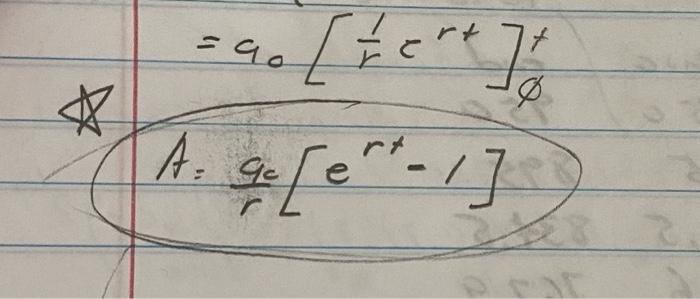 = q₀ [ 1/r e^{rt} ]_0^t
A = q₀/r [ e^{rt} - 1 ]